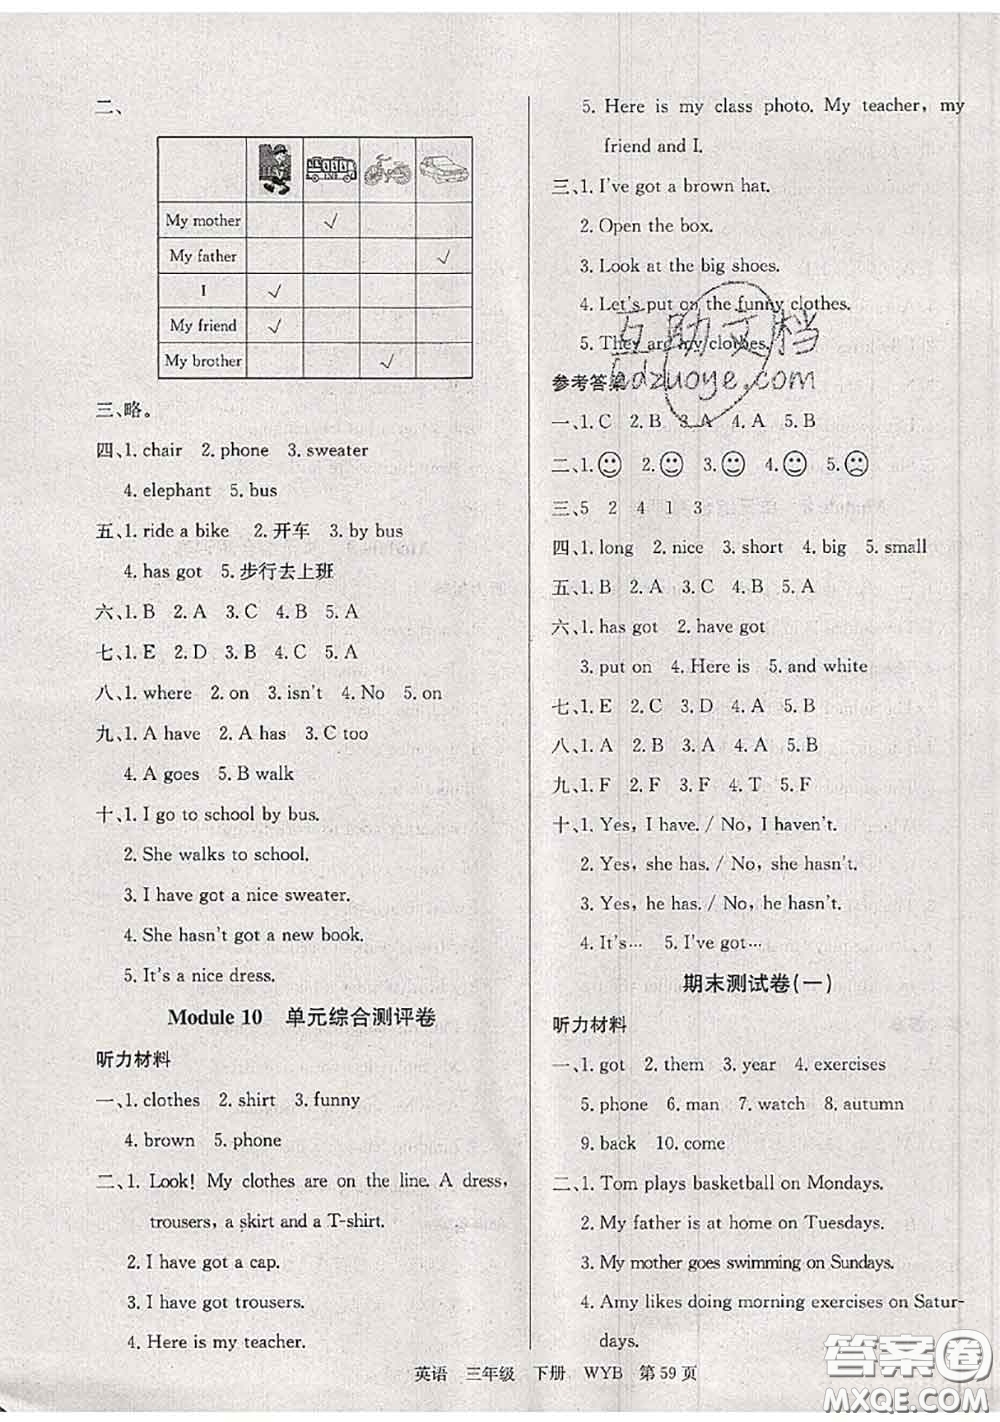 二、
My mother √
My father √
I √
My friend √
My brother √
三、略。
四、1. chair 2. phone 3. sweater
4. elephant 5. bus
五、1. ride a bike 2. 开车 3. by bus
4. has got 5. 步行去上班
六、1. B 2. A 3. C 4. B 5. A
七、1. E 2. D 3. B 4. C 5. A
八、1. where 2. on 3. isn't 4. No 5. on
九、1. A have 2. A has 3. C too
4. A goes 5. B walk
十、1. I go to school by bus.
2. She walks to school.
3. I have got a nice sweater.
4. She hasn't got a new book.
5. It's a nice dress.
Module 10 单元综合测评卷
听力材料
一、1. clothes 2. shirt 3. funny
4. brown 5. phone
二、1. Look! My clothes are on the line. A dress,
trousers, a skirt and a T-shirt.
2. I have got a cap.
3. I have got trousers.
4. Here is my teacher.
5. Here is my class photo. My teacher, my
friend and I.
三、1. I've got a brown hat.
2. Open the box.
3. Look at the big shoes.
4. Let's put on the funny clothes.
5. They are my clothes.
参考答案
一、1. C 2. B 3. A 4. A 5. B
二、1. 2. 3. 4. 5.
三、5 2 4 1 3
四、1. long 2. nice 3. short 4. big 5. small
五、1. B 2. A 3. C 4. B 5. A
六、1. has got 2. have got
3. put on 4. Here is 5. and white
七、1. E 2. C 3. D 4. A 5. B
八、1. A 2. B 3. A 4. A 5. B
九、1. F 2. F 3. F 4. T 5. F
十、1. Yes, I have. / No, I haven't.
2. Yes, she has. / No, she hasn't.
3. Yes, he has. / No, he hasn't.
4. It's… 5. I've got…
期末测试卷(一)
听力材料
一、1. got 2. them 3. year 4. exercises
5. phone 6. man 7. watch 8. autumn
9. back 10. come
二、1. Tom plays basketball on Mondays.
2. My father is at home on Tuesdays.
3. My mother goes swimming on Sundays.
4. Amy likes doing morning exercises on Satur-
days.
英语 三年级 下册 WYB 第 59 页
互助文档
hdzuoye.com
答案圈
MXQE.COM